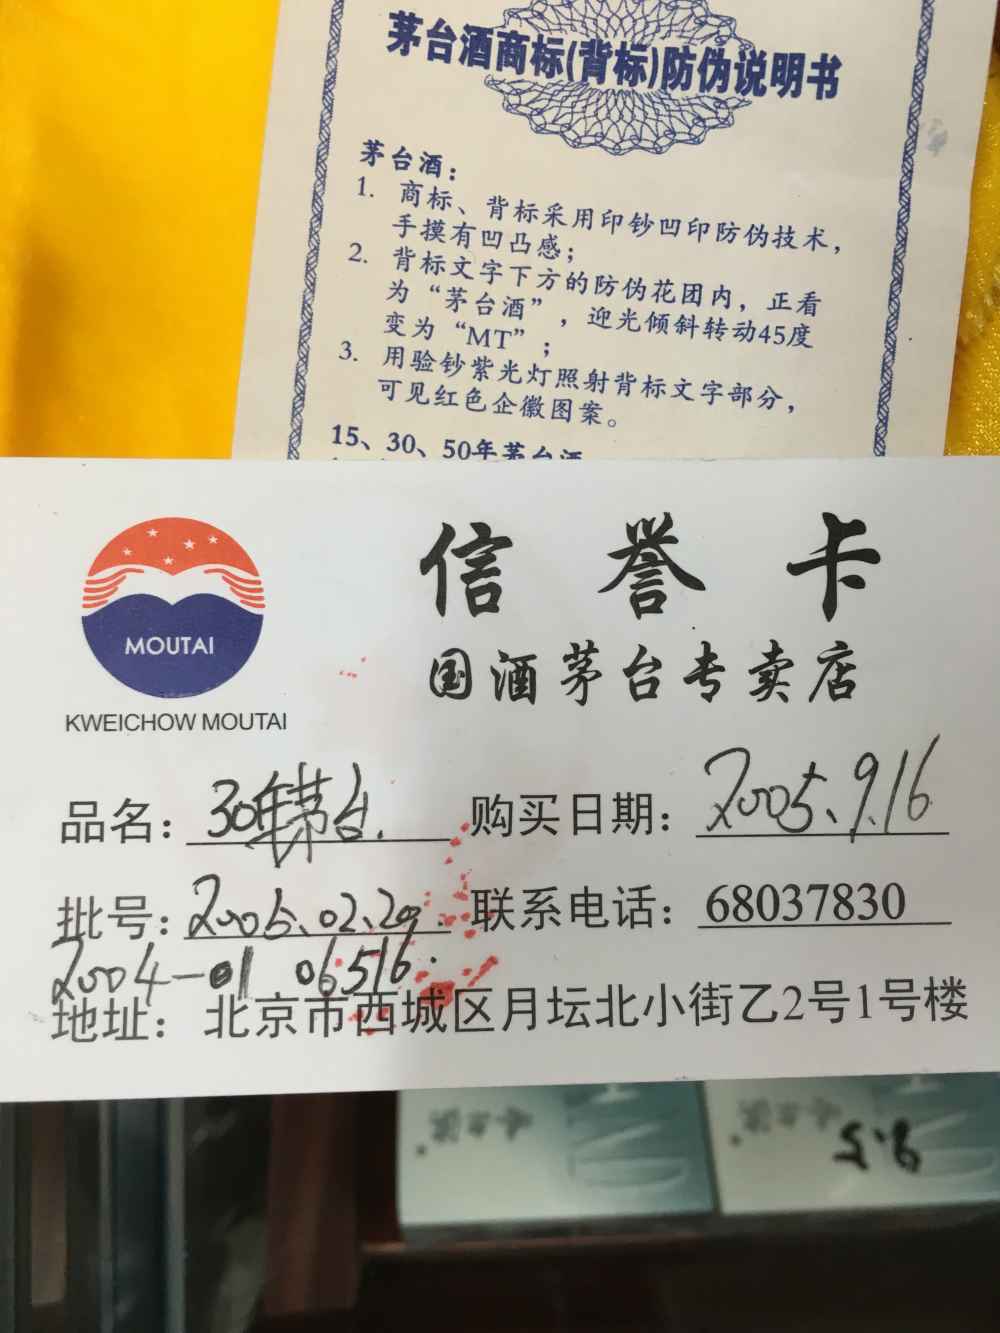 茅台酒商标(背标)防伪说明书
茅台酒：
1. 商标、背标采用印钞凹印防伪技术，
手摸有凹凸感；
2. 背标文字下方的防伪花团内，正看
为“茅台酒”，迎光倾斜转动45度
变为“MT”；
3. 用验钞紫光灯照射背标文字部分，
可见红色企徽图案。
15、30、50年茅台酒
信誉卡
国酒茅台专卖店
MOUTAI
KWEICHOW MOUTAI
品名：30年茅台. 购买日期：2005、9.16
批号：2005、02、29. 联系电话：68037830
2004-01 06516.
地址：北京市西城区月坛北小街乙2号1号楼